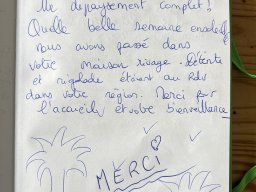 Un dépaysement complet!
Quelle belle semaine ensoleillée
nous avons passé dans
votre maison rivage. Détente
et rigolade étaient au Rdv
dans votre région. Merci pour
l'accueil et votre bienveillance
MERCI